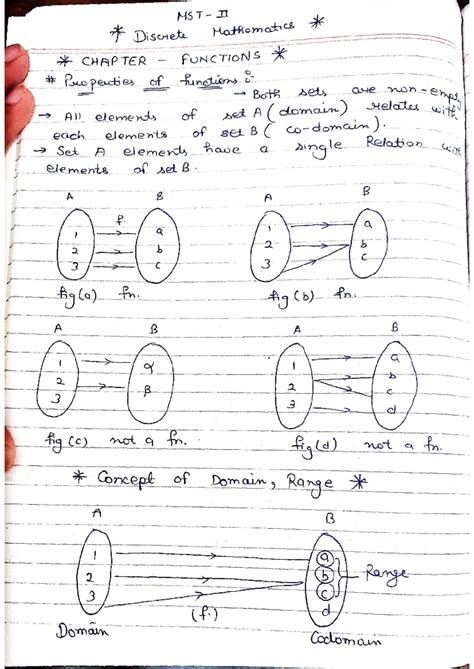 MST - II
* Discrete Mathematics *
* CHAPTER - FUNCTIONS *
# Properties of functions :-
→ Both sets are non-empty
→ All elements of set A (domain) relates with
each elements of set B (co-domain).
→ Set A elements have a single Relation with
elements of set B.
A B A B
f.
1 a 1 a
2 b 2 b
3 c 3 c
fig(a) fn. fig(b) fn.
A B A B
1 α 1 a
2 β 2 b
3 3 c
d
fig(c) not a fn. fig(d) not a fn.
* Concept of Domain, Range *
A B
1 a
2 b Range
3 c
(f.) d
Domain Codomain